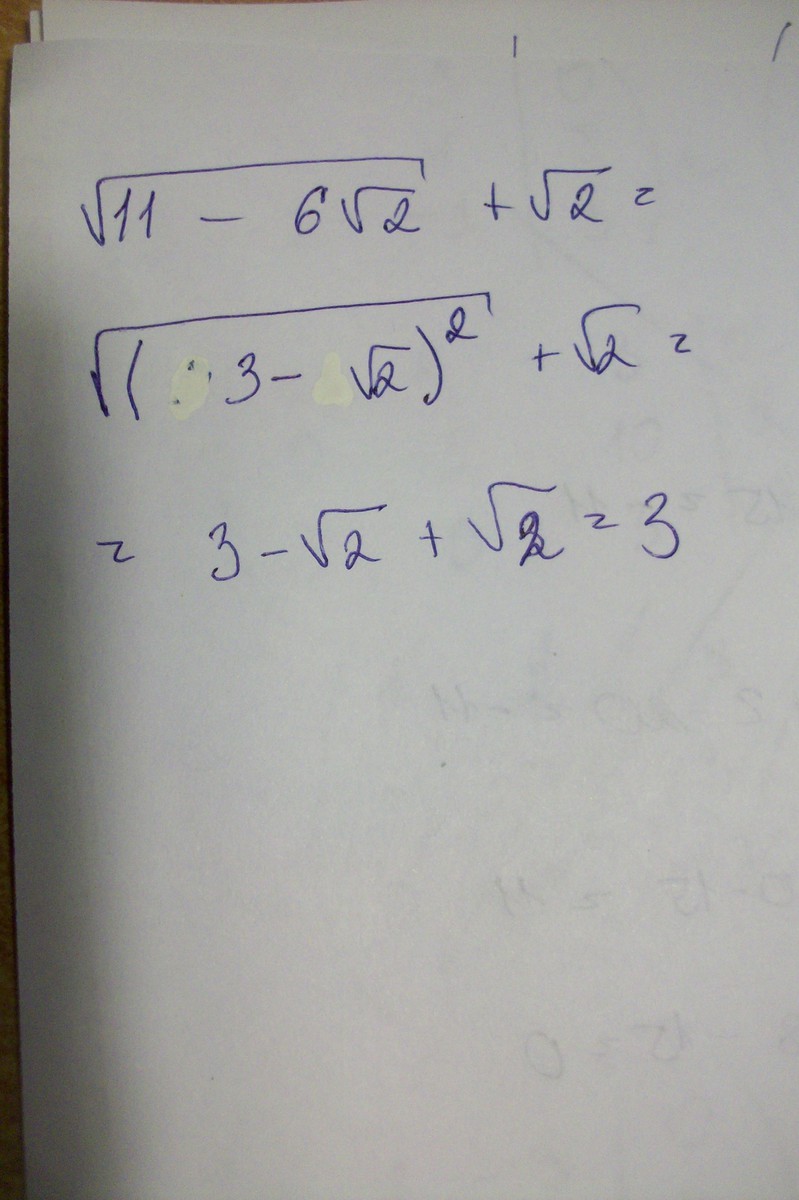 √(11 - 6√2) + √2 =
√((3 - √2)²) + √2 =
= 3 - √2 + √2 = 3